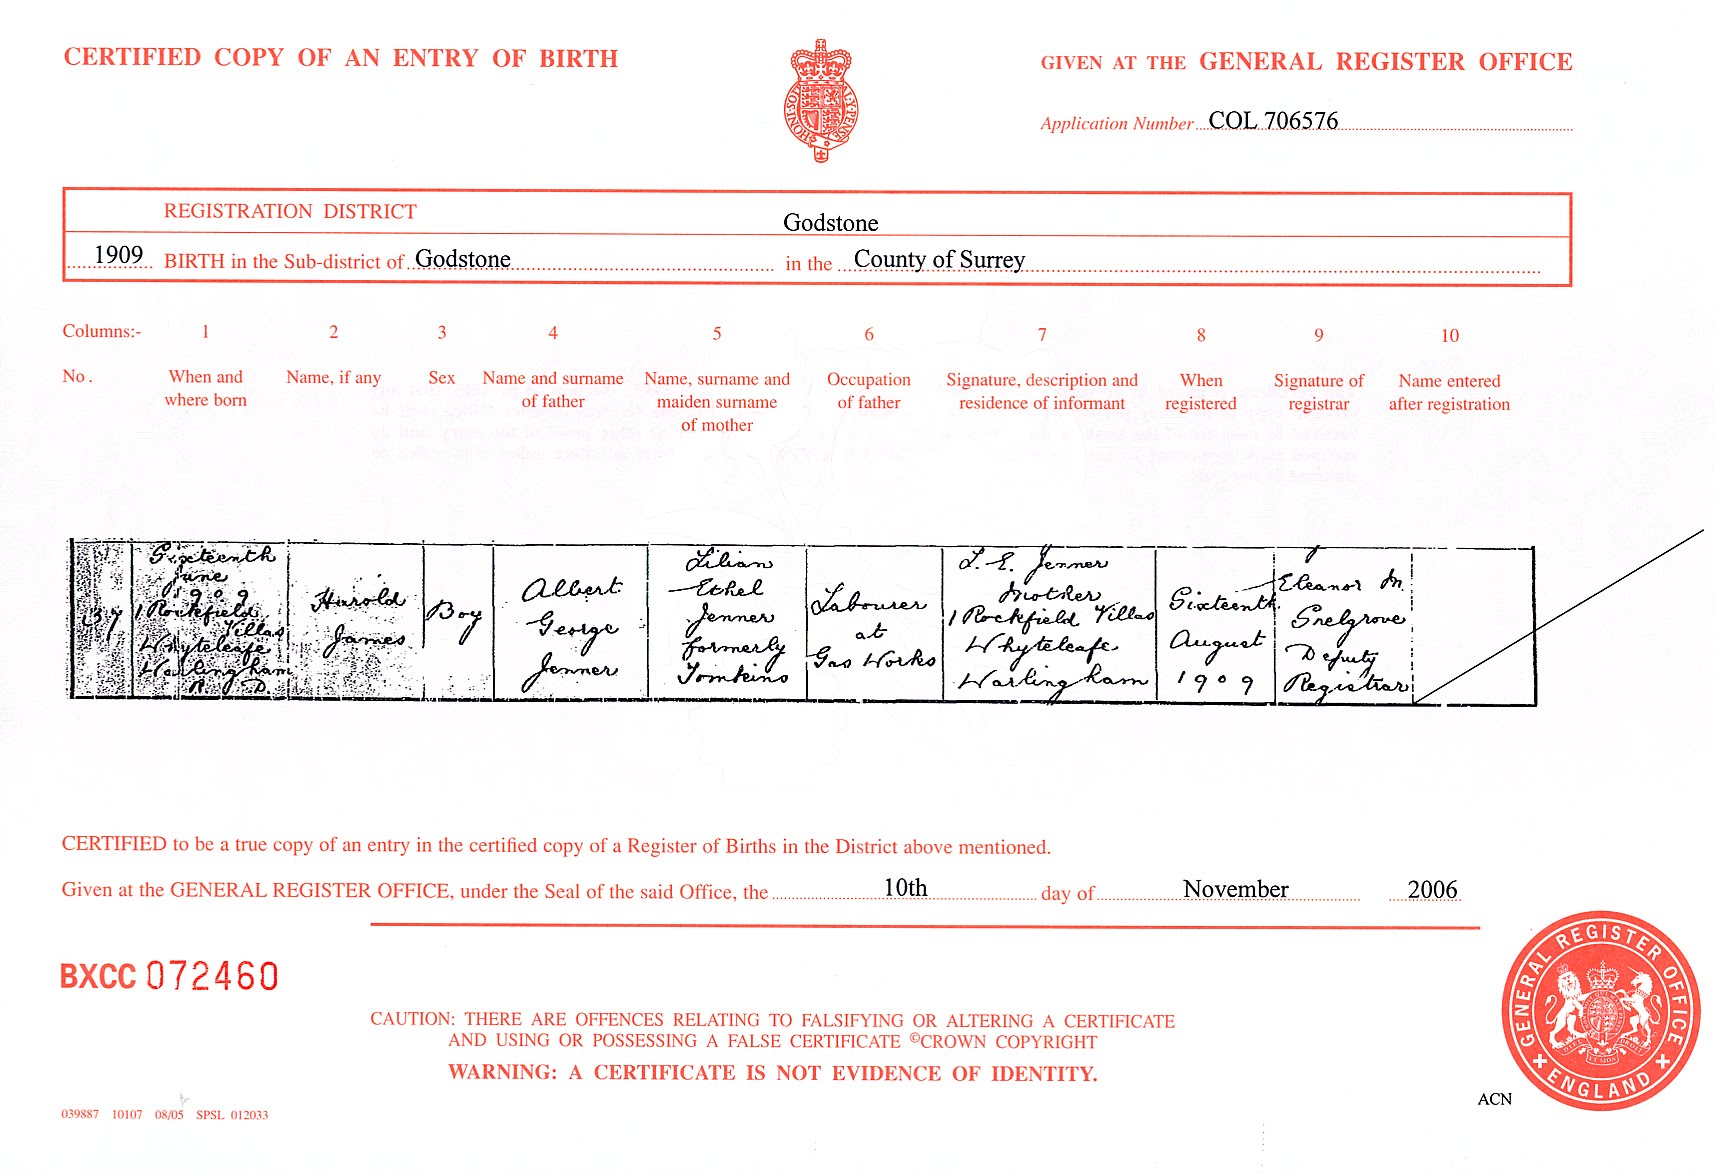 CERTIFIED COPY OF AN ENTRY OF BIRTH
GIVEN AT THE GENERAL REGISTER OFFICE
HONI SOIT QUI MAL Y PENSE
Application Number COL 706576
REGISTRATION DISTRICT
Godstone
1909 BIRTH in the Sub-district of Godstone in the County of Surrey
Columns:- 1 2 3 4 5 6 7 8 9 10
No. When and where born
Name, if any
Sex
Name and surname of father
Name, surname and maiden surname of mother
Occupation of father
Signature, description and residence of informant
When registered
Signature of registrar
Name entered after registration
Sixteenth
June
1909
1 Rockfield
Villas
Whyteleafe
Warlingham
R. D.
Harold
James
Boy
Albert
George
Jenner
Lilian
Ethel
Jenner
formerly
Tomkins
Labourer
at
Gas Works
L. E. Jenner
Mother
1 Rockfield Villas
Whyteleafe
Warlingham
Sixteenth
August
1909
Eleanor M.
Snelgrove
Deputy
Registrar
CERTIFIED to be a true copy of an entry in the certified copy of a Register of Births in the District above mentioned.
Given at the GENERAL REGISTER OFFICE, under the Seal of the said Office, the 10th day of November 2006
BXCC 072460
CAUTION: THERE ARE OFFENCES RELATING TO FALSIFYING OR ALTERING A CERTIFICATE
AND USING OR POSSESSING A FALSE CERTIFICATE ©CROWN COPYRIGHT
WARNING: A CERTIFICATE IS NOT EVIDENCE OF IDENTITY.
GENERAL REGISTER OFFICE
ENGLAND
039887 10107 08/05 SPSL 012033
ACN